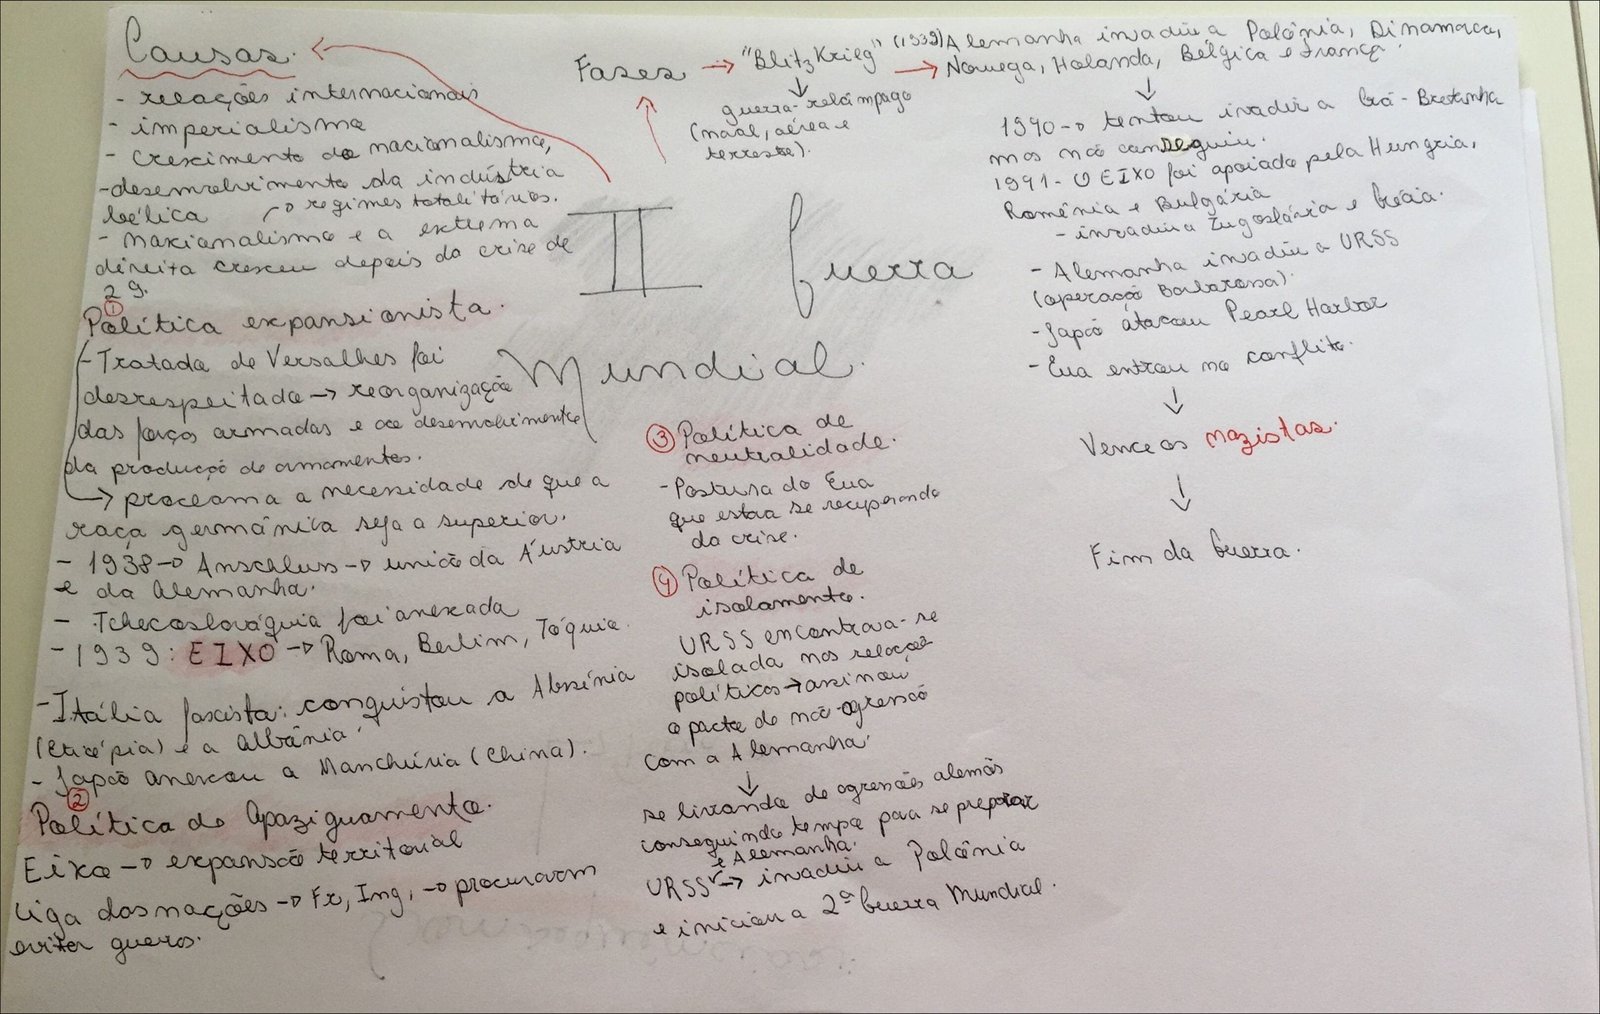 Causas.
- relações internacionais
- imperialismo
- crescimento do nacionalismo,
- desenvolvimento da indústria
bélica → regimes totalitários.
- nacionalismo e a extrema
direita cresceu depois da crise de
29.
① Política expansionista.
- Tratado de Versalhes foi
desrespeitado → reorganização
das forças armadas e ao desenvolvimento
da produção de armamentos.
→ proclama a necessidade de que a
raça germânica seja a superior.
- 1938 → Anschluss → união da Áustria
e da Alemanha.
- Tchecoslováquia foi anexada
- 1939: EIXO → Roma, Berlim, Tóquio.
- Itália fascista: conquistou a Abssínia
(Etiópia) e a Albânia.
- Japão anexou a Manchúria (China).
② Política de Apaziguamento.
Eixo → expansão territorial
Liga das nações → Fr, Ing, → procuravam
evitar guerras.
II Guerra
Mundial.
Fases → "BlitzKrieg" → (1939) Alemanha invadiu a Polônia, Dinamarca,
Noruega, Holanda, Bélgica e França.
↓
guerra-relâmpago
(naval, aérea e
terrestre).
↓
1940 → tentou invadir a Grã-Bretanha
mas não conseguiu.
1941 - O EIXO foi apoiado pela Hungria,
Romênia e Bulgária
- invadiu a Iugoslávia e Grécia.
- Alemanha invadiu a URSS
(operação Barbarossa).
- Japão atacou Pearl Harbor
- Eua entrou no conflito.
↓
Vence os nazistas.
↓
Fim da Guerra.
③ Política de
neutralidade.
- Postura do Eua
que estava se recuperando
da crise.
④ Política de
isolamento.
URSS encontrava-se
isolada nas relações
políticas → assinou
o pacto de não-agressão
com a Alemanha
↓
se livrando de agressões alemãs
conseguindo tempo para se preparar
e Alemanha.
URSS → invadiu a Polônia
e iniciou a 2ª Guerra Mundial.